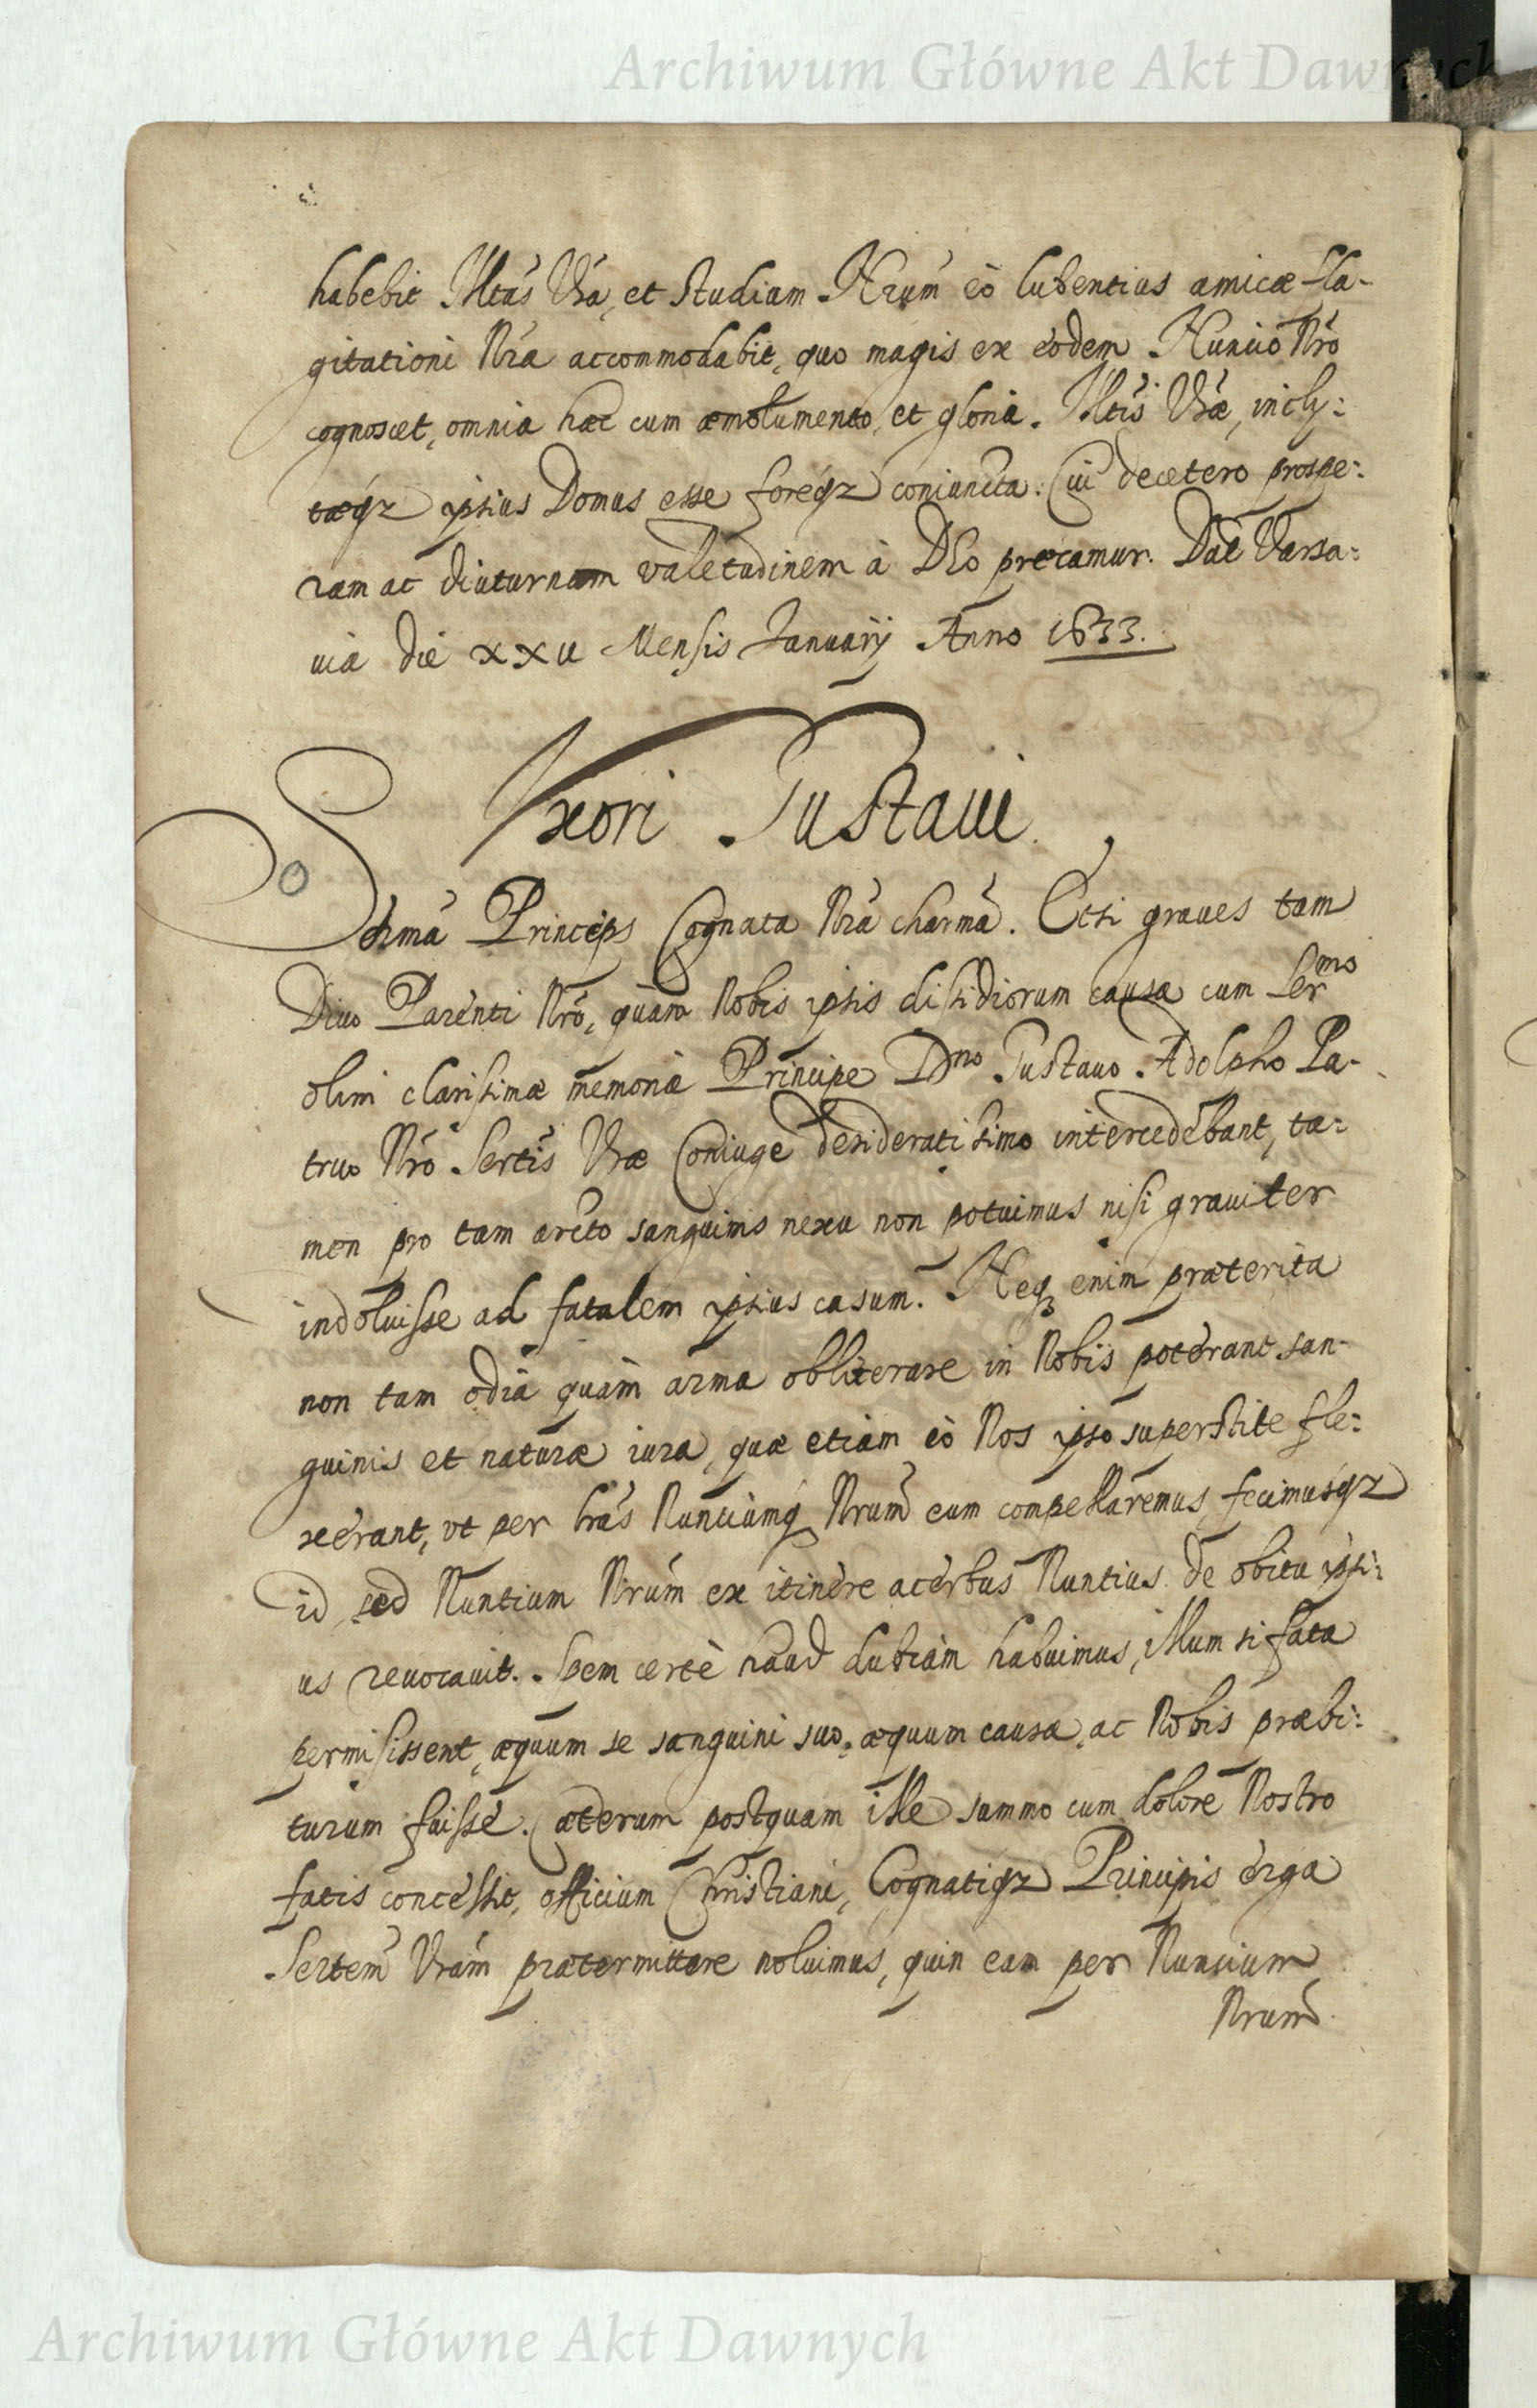 Archiwum Główne Akt Dawnych
habebit Illtas Vra, et studium Nrum eò lubentius amicæ fla-
gitationi Nra accommodabit, quo magis ex eodem Nuncio Nro
cognoscet, omnia hæc cum æmolumento, et gloria. Illtis Vræ, incly:
tæqz ipsius Domus esse foreqz coniuncta. Cui decetero prospe:
ram ac diuturnam valetudinem à Deo precamur. Dat Varsa:
uiæ die XXV Mensis Januarij Anno 1633.
Vxori Gustaui
Serma Princeps Cognata Nra charma. Etsi graues tam
Diuo Parenti Nro, quam Nobis ipsis dissidiorum causæ cum Ser^mo
olim clarissimæ memoriæ Principe D^no Gustauo Adolpho Pa-
truo Nro Sertis Vræ Coniuge desideratissimo intercedebant, ta:
men pro tam arcto sanguinis nexu non potuimus nisi grauiter
indoluisse ad fatalem ipsius casum. Neq enim præterita
non tam odia quàm arma obliterare in Nobis poterant san-
guinis et naturæ iura, quæ etiam eò Nos ipso superstite fle:
xerant, vt per lras Nunciumq Nrum eum compellaremus fecimusqz
id, sed Nuntium Nrum ex itinere acerbus Nuntius de obitu ipsi:
us reuocauit. Spem certè haud dubiam habuimus, illum si fata
permisissent, æquum se sanguini suo, æquum causæ, ac Nobis præbi:
turum fuisse. Cæterum postquam ille summo cum dolore Nostro
fatis concessit, officium Christiani, Cognatiqz Principis erga
Sertem Vram prætermittere noluimus, quin eam per Nuncium
Nrum
Archiwum Główne Akt Dawnych